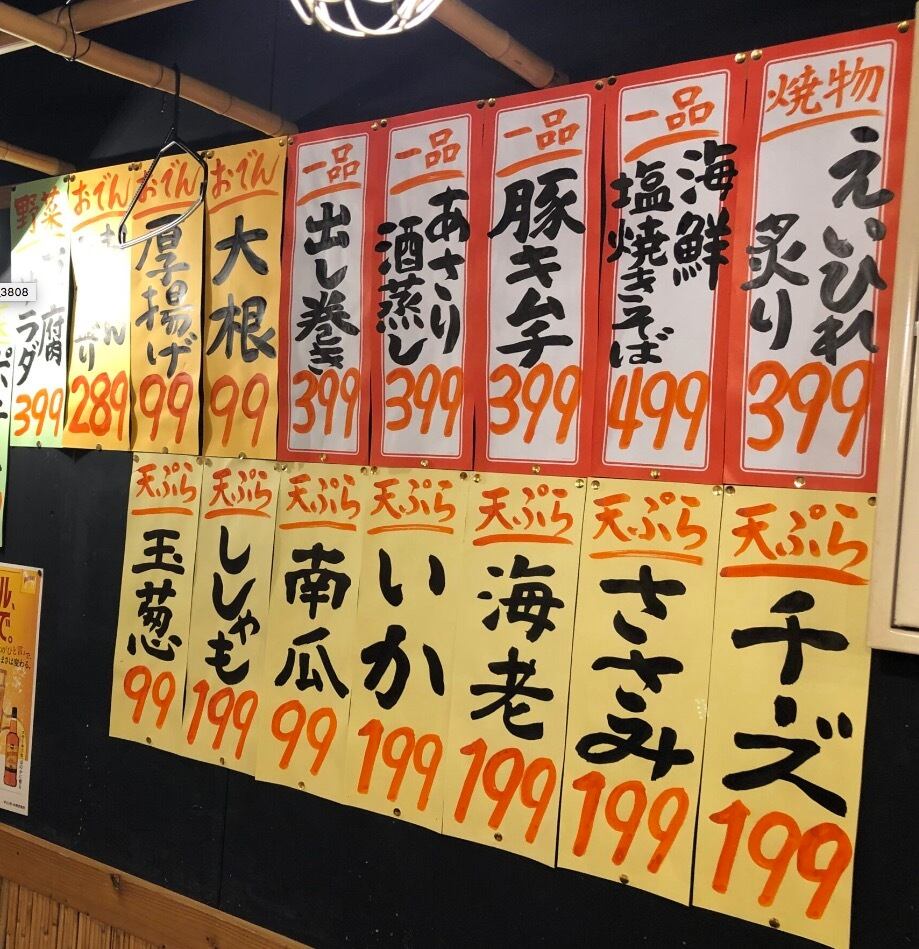 焼物
えいひれ
炙り
399
一品
海鮮
塩焼きそば
499
一品
豚キムチ
399
一品
あさり
酒蒸し
399
一品
出し巻き
399
おでん
大根
99
おでん
厚揚げ
99
おでん
289
野菜
腐
サラダ
399
天ぷら
チーズ
199
天ぷら
ささみ
199
天ぷら
海老
199
天ぷら
いか
199
天ぷら
南瓜
99
天ぷら
ししゃも
199
天ぷら
玉葱
99
3808